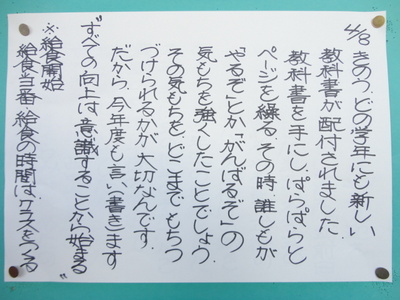 4/8 きのう、どの学年にも新しい
教科書が配付されました。
教科書を手にし、ぱらぱらと
ページを繰る。その時、誰しもが
「やるぞ」とか「がんばるぞ」の
気もちを強くしたことでしょう。
その気もちを、どこまでもちつ
づけられるかが大切なんです。
だから、今年度も言い、書きます
"すべての向上は、意識することから始まる"
※給食開始
給食当番・給食の時間は、クラスをつくる